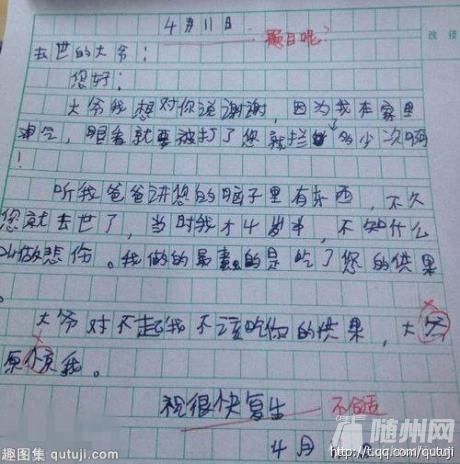 4月11日
题目呢?
改错
去世的大爷:
您好:
大爷我想对你说谢谢,因为我在家里
淘气,眼看就要被打了您就拦 多少次啊
!
听我爸爸讲您的脑子里有东西,不久
您就去世了,当时我才4岁半,不知什么
叫做悲伤。我做的最 的是吃了您的供果
。
大爷对不起我不该吃你的供果,大
原 我。
祝很快复生
不合适
4月
随州网
趣图集 qutuji.com
http://t.qq.com/qutuji